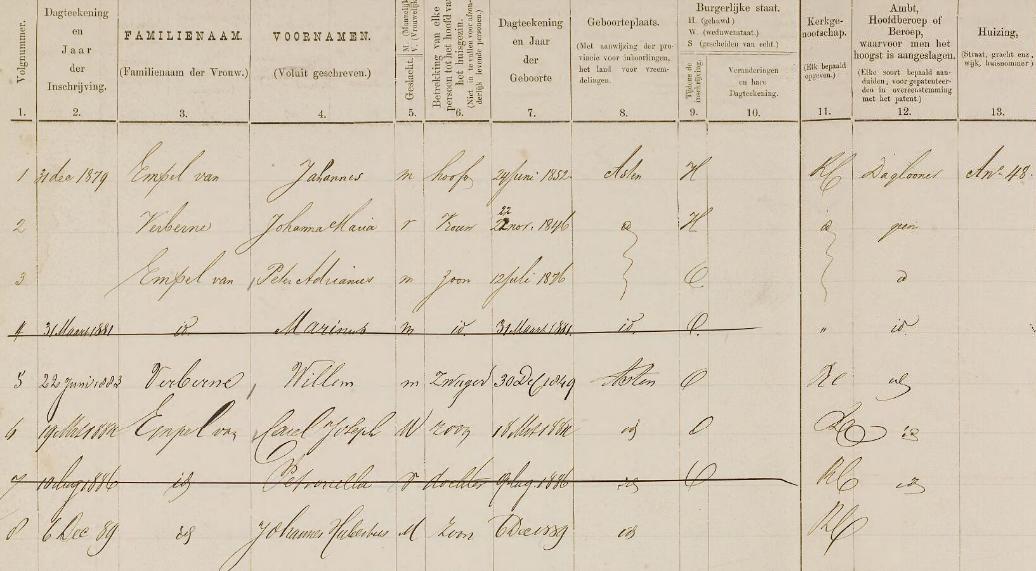 Volgnummer.
Dagteekening en Jaar der Inschrijving.
FAMILIENAAM.
(Familienaam der Vrouw.)
VOORNAMEN.
(Voluit geschreven.)
Geslacht.
M. (Mannelijk) V. (Vrouwelijk)
Betrekking van elke persoon tot het hoofd van het huisgezin.
(Niet in te vullen voor afzonderlijk levende personen.)
Dagteekening en Jaar der Geboorte
Geboorteplaats.
(Met aanwijzing der provincie voor inboorlingen, het land voor vreemdelingen.
Burgerlijke staat.
H. (gehuwd)
W. (weduwenstaat.)
S (gescheiden van echt.)
Tijdens de inschrijving.
Veranderingen en hare Dagteekening.
Kerkgenootschap.
(Elk bepaald opgeven.)
Ambt, Hoofdberoep of Beroep, waarvoor men het hoogst is aangeslagen.
(Elke soort bepaald aanduiden, voor gepatenteerden in overeenstemming met het patent.)
Huizing,
(Straat, gracht enz., wijk, huisnommer)
1. 2. 3. 4. 5. 6. 7. 8. 9. 10. 11. 12. 13.
1 31 dec 1879 Empel van Johannes m hoofd 24 Juni 1852 Asten H RC Daglooner An 48
2 Verberne Johanna Maria v Vrouw 22 nov. 1846 id H id geen
3 Empel van Peter Adrianus m zoon 12 Juli 1876 O id
4 31 Maart 1881 id Marinus m id 31 Maart 1881 id O " id
5 22 Juni 1883 Verberne Willem m Zwager 30 Dec 1849 Asten O RC id
6 19 Mrt 1884 Empel van Carel Joseph M zoon 18 Mrt 1884 id O RC id
7 10 Aug 1886 id Petronella V dochter 9 Aug. 1886 id O RC id
8 6 Dec 89 id Johannes Hubertus M zoon 6 Dec 1889 id RC